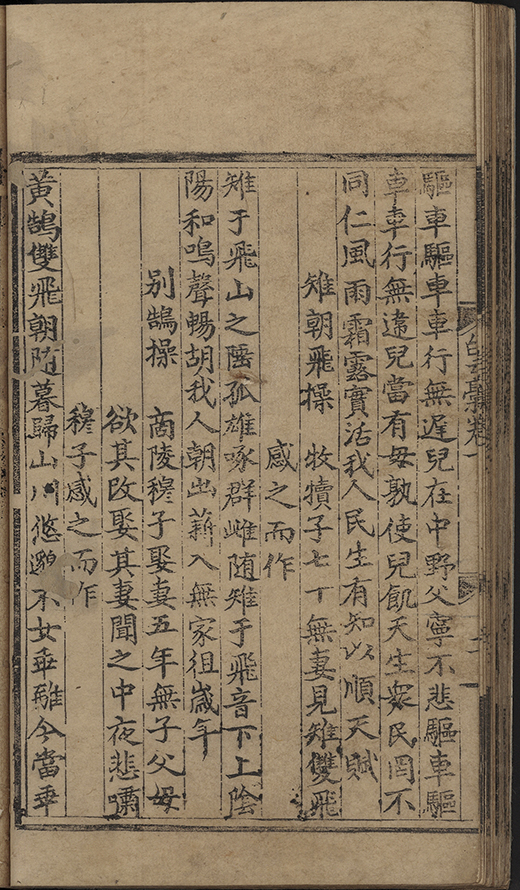 驅車驅車車行無遲兒在中野父寧不悲驅車驅
車車行無違兒當有母孰使兒飢天生衆民罔不
同仁風雨霜露實活我人民生有知以順天賦
雉朝飛操 牧犢子七十無妻見雉雙飛
感之而作
雉于飛山之陸孤雄啄群雌随雉于飛音下上陰
陽和鳴聲暢胡我人朝出薪入無家徂歲年
别鵠操 商陵穆子娶妻五年無子父母
欲其改娶其妻聞之中夜悲嘯
穆子感之而作
黃鵠雙飛朝随暮歸山川悠邈不女乖離今當乖
白雲藁卷一